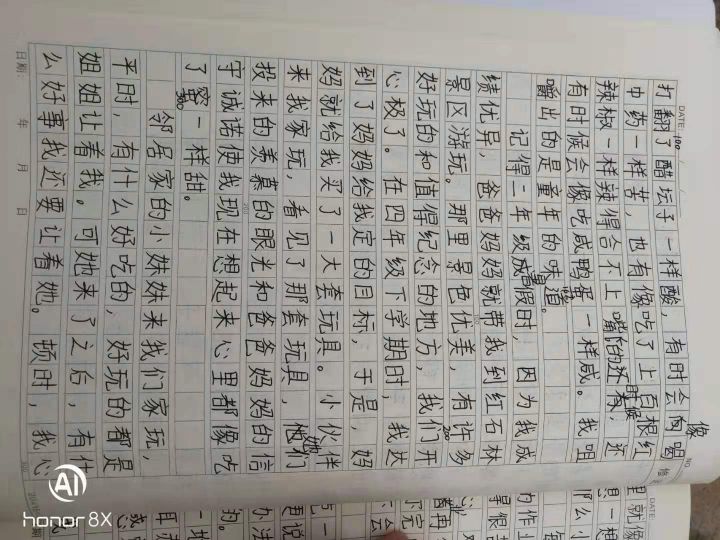 DATE
打翻了醋坛子一样酸,有时会像喝
中药一样苦,也有像吃了上百根红
辣椒一样辣得合不上嘴的时候,还
有时候会像吃咸鸭蛋一样咸。我咀
嚼出的是童年的味道。
记得二年级暑假时,因为我成
绩优异,爸爸妈妈就带我到红石林
景区游玩。那里景色优美,有许多
好玩的和值得纪念的地方,我们开
心极了。在四年级下学期时,我达
到了妈妈给我定的目标,于是,妈
妈就给我买了一大套玩具。小伙伴
来我家玩,看见了那套玩具,她们
投来的羡慕的眼光和爸爸妈妈的信
守诚诺使我现在想起来心里都像吃
了蜜一样甜。
邻居家的小妹妹来我们家玩,
平时,有什么好吃的,好玩的都是
姐姐让着我。可她来了之后,有什
么好事我还要让着她。顿时,我心
日期: 年 月 日
AI
honor 8X